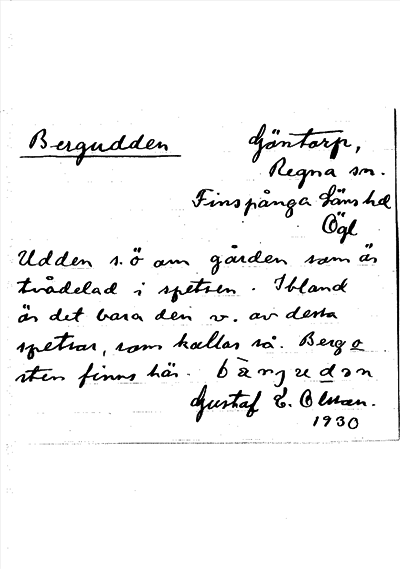 Bergudden
Göntorp,
Regna sn.
Finspånga länshd
Ögl
Udden s.ö om gården som är
tvådelad i spetsen. Ibland
är det bara den v. av dessa
spetsar, som kallas så. Berg o
sten finns här.
Gustaf E. Olsson.
1930